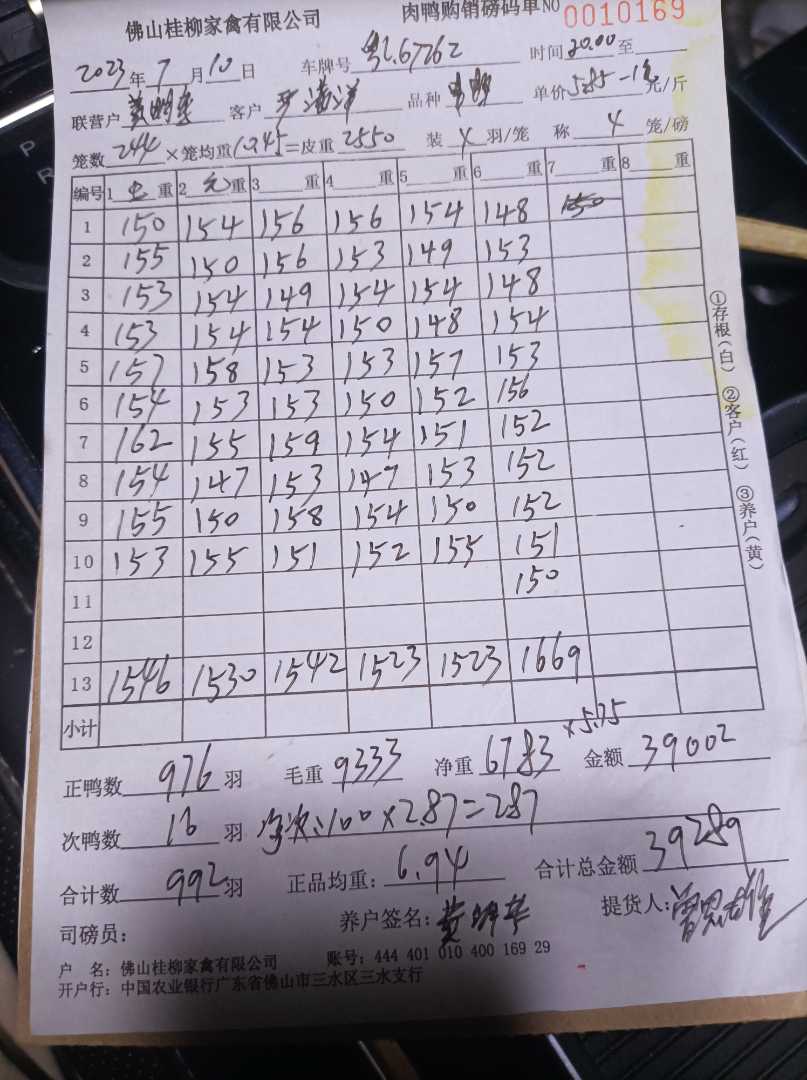 佛山桂柳家禽有限公司 肉鸭购销磅码单 NO 0010169
2023年7月10日 车牌号 粤L67262 时间20.00至
联营户 客户 品种 单价5.85-1角元/斤
笼数244×笼均重10.45=皮重2550 装4羽/笼 称4笼/磅
编号 1 重 2 重 3 重 4 重 5 重 6 重 7 重 8 重
1 150 154 156 156 154 148 150
2 155 150 156 153 149 153
3 153 154 149 154 154 148
4 153 154 154 150 148 154
5 157 158 153 153 157 153
6 154 153 153 150 152 156
7 162 155 159 154 151 152
8 154 147 153 147 153 152
9 155 150 158 154 150 152
10 153 155 151 152 155 151
11 150
12
13 1546 1530 1542 1523 1523 1669
小计
正鸭数976羽 毛重9333 净重6783×5.75 金额39002
次鸭数16羽 100×2.87=287
合计数992羽 正品均重:6.94 合计总金额39289
司磅员: 养户签名: 提货人:
户 名:佛山桂柳家禽有限公司 账号:444 401 010 400 169 29
开户行:中国农业银行广东省佛山市三水区三水支行
①存根(白) ②客户(红) ③养户(黄)